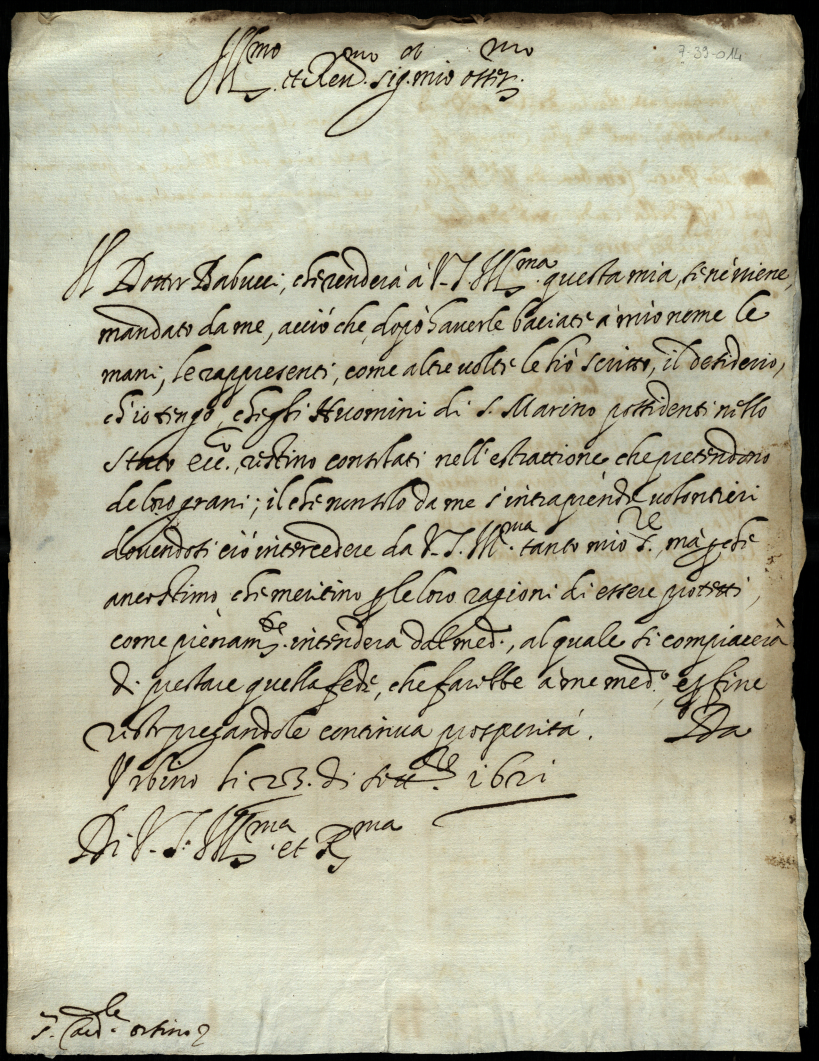 7-39-014
Ill.mo et Reu.mo sig.or mio osser.mo
Il Dottor Babucci, che renderà à V. S. Ill.ma questa mia, se nè uiene,
mandato da me, acciò che, dopò hauerle baciate à mio nome le
mani, le rappresenti, come altre uolte le hò scritto, il desiderio,
ch'io tengo, che gli Huomini di S. Marino possidenti nello
Stato Ecc.co, restino consolati nell'estrattione, che pretendono
de loro grani; il che non solo da me s'intraprende uolontieri
douendosi ciò intercedere da V. S. Ill.ma tanto mio S.re, mà perche
anco stimo che meritino p le loro ragioni di essere protetti,
come pienam.te intenderà dal med.o, al quale si compiacerà
di prestare quella fede, che farebbe à me med.o e p fine
resto pregandole continua prosperità. Da
Vrbino li 23. di Sett.re 1621
Di V. S. Ill.ma et R.ma
S. Card.le Orsino